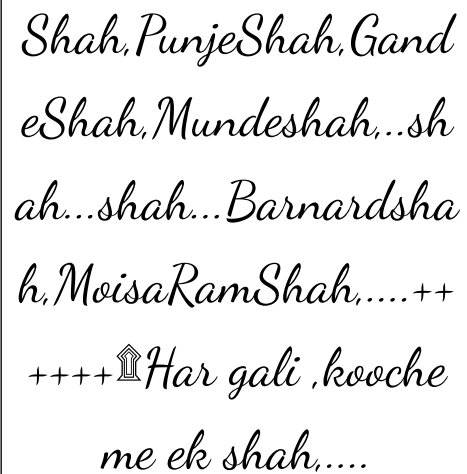 Shah,PunjeShah,Gand
eShah,Mundeshah,..sh
ah...shah...Barnardsha
h,MoisaRamShah,....++
++++۩Har gali ,kooche
me ek shah,....